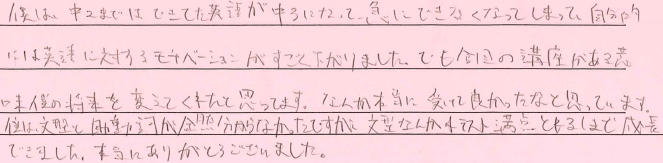 僕は、中2まではできてた英語が中3になって、急にできなくなってしまって、自分的
には英語に対するモチベーションがすごく下がりました。でも今回の講座がある意
味僕の将来を変えてくれたと思ってます。なんか本当に受けて良かったなと思っています。
僕は、文型と助動詞が全然分からなかったですが、文型なんか小テスト満点とれるまで成長
できました。本当にありがとうございました。